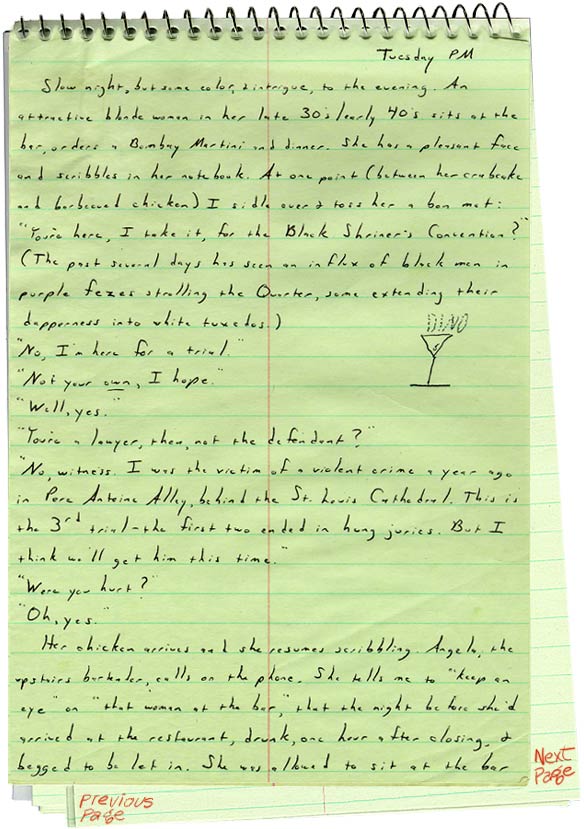 Tuesday PM
Slow night, but some color, & intrigue, to the evening. An
attractive blonde woman in her late 30's/early 40's sits at the
bar, orders a Bombay Martini and dinner. She has a pleasant face
and scribbles in her notebook. At one point (between her crabcake
and barbecued chicken) I sidle over & toss her a bon mot:
"You're here, I take it, for the Black Shriner's Convention?"
(The past several days has seen an influx of black men in
purple fezes strolling the Quarter, some extending their
dapperness into white tuxedos.)
DINO
"No, I'm here for a trial."
"Not your own, I hope."
"Well, yes."
"You're a lawyer, then, not the defendant?"
"No, witness. I was the victim of a violent crime a year ago
in Pere Antoine Alley, behind the St. Louis Cathedral. This is
the 3rd trial - the first two ended in hung juries. But I
think we'll get him this time."
"Were you hurt?"
"Oh, yes."
Her chicken arrives and she resumes scribbling. Angela, the
upstairs bartender, calls on the phone. She tells me to "keep an
eye" on "that woman at the bar," that the night before she'd
arrived at the restaurant, drunk, one hour after closing, &
begged to be let in. She was allowed to sit at the bar
Next
Page
Previous
Page